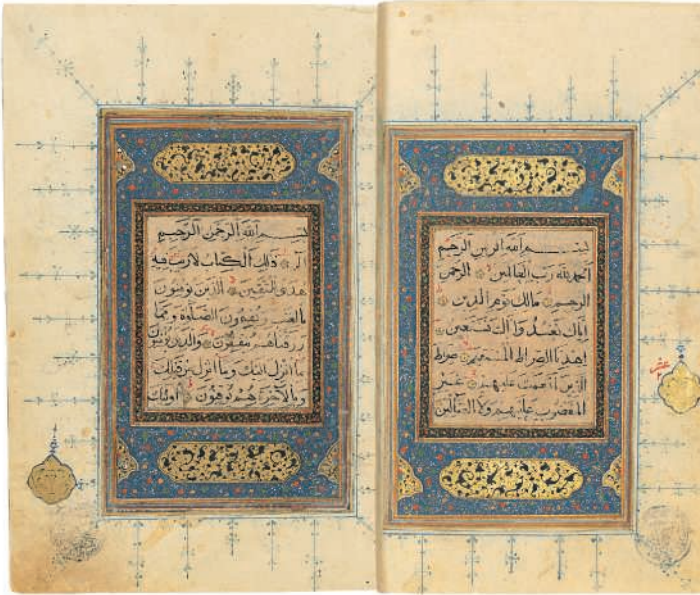 بسم الله الرحمن الرحيم
الحمد لله رب العالمين الرحمن
الرحيم مالك يوم الدين
اياك نعبد واياك نستعين
اهدنا الصراط المستقيم صراط
الذين انعمت عليهم غير
المغضوب عليهم ولا الضالين
عشر
بسم الله الرحمن الرحيم
الم ذلك الكتاب لا ريب فيه
هدى للمتقين الذين يؤمنون
بالغيب ويقيمون الصلوة ومما
رزقناهم ينفقون والذين يؤمنون
بما انزل اليك وما انزل من قبلك
وبالآخرة هم يوقنون اولئك